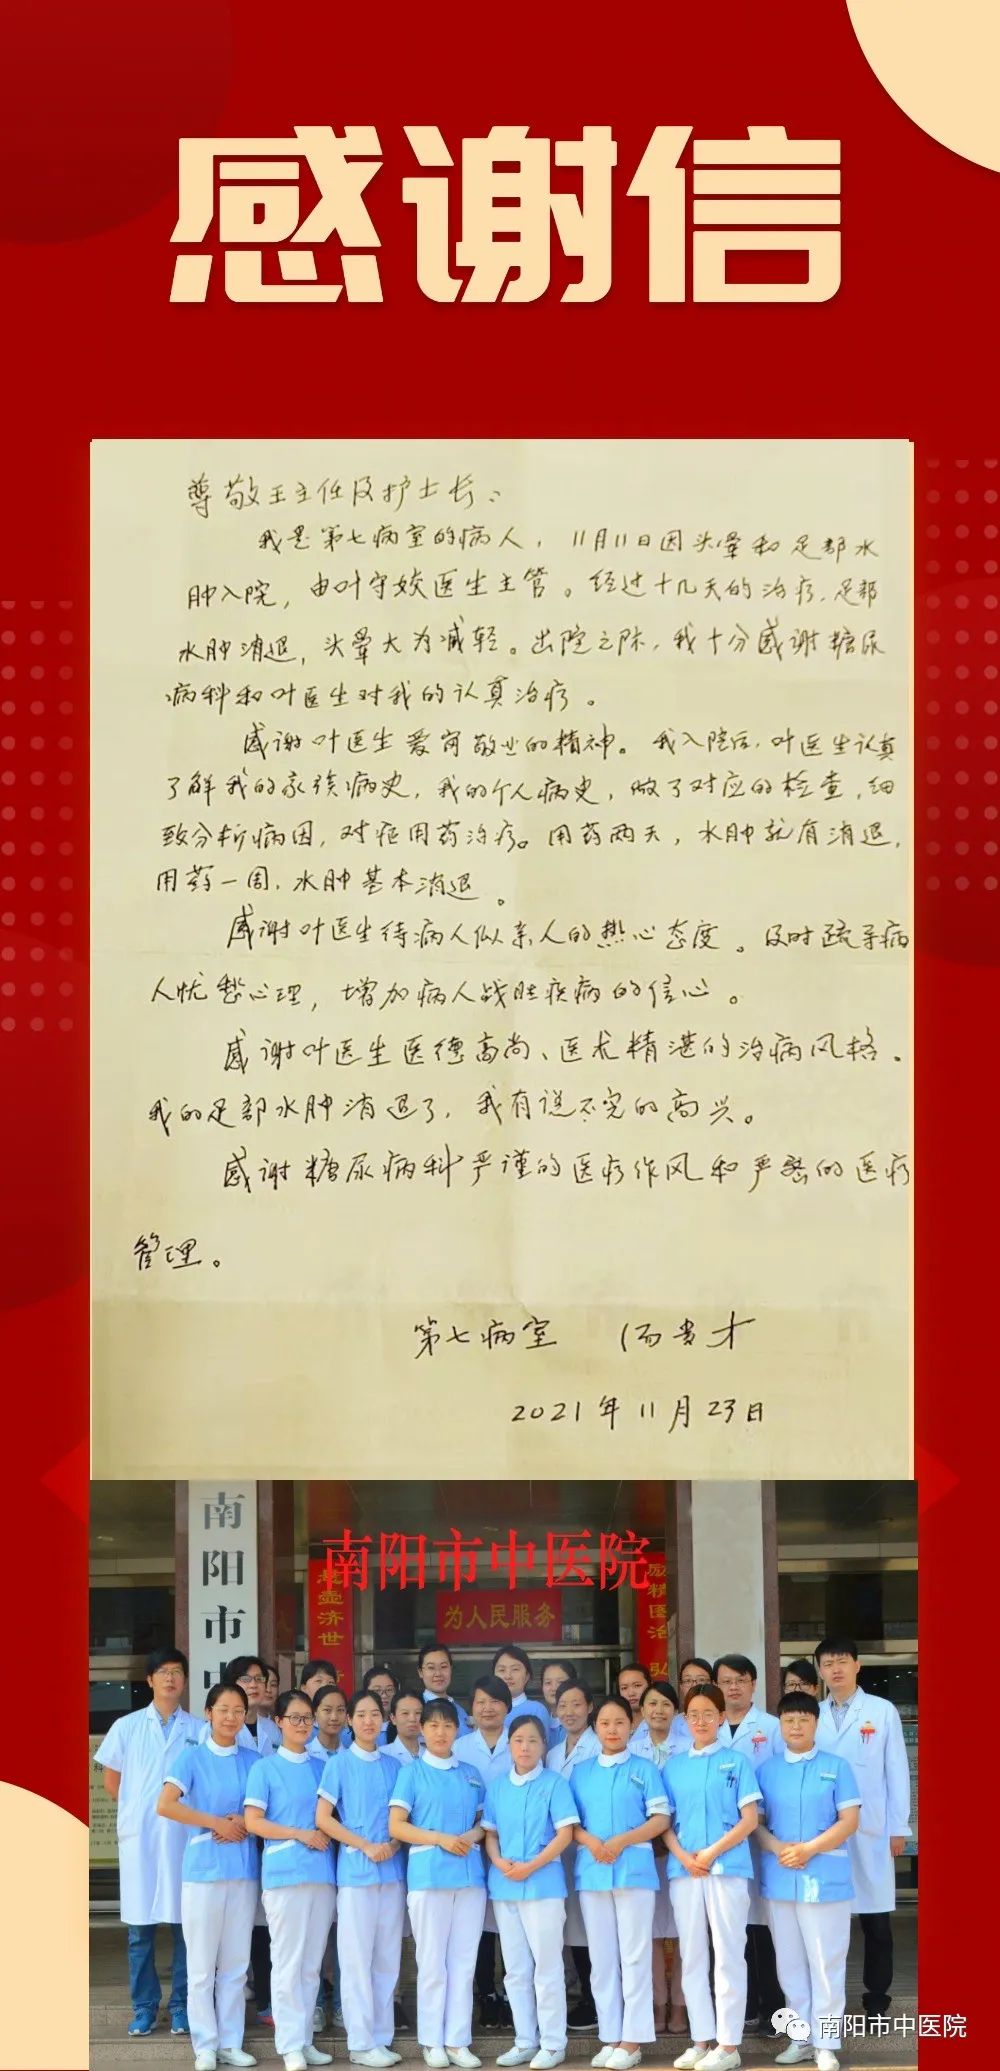 感谢信
尊敬王主任及护士长：
我是第七病室的病人，11月11日因头晕和足部水
肿入院，由叶守姣医生主管。经过十几天的治疗，足部
水肿消退，头晕大为减轻。出院之际，我十分感谢糖尿
病科和叶医生对我的认真治疗。
感谢叶医生爱岗敬业的精神。我入院后，叶医生认真
了解我的家族病史，我的个人病史，做了对应的检查，细
致分析病因，对症用药治疗。用药两天，水肿就有消退，
用药一周，水肿基本消退。
感谢叶医生待病人似亲人的热心态度。及时疏导病
人忧愁心理，增加病人战胜疾病的信心。
感谢叶医生医德高尚、医术精湛的治病风格。
我的足部水肿消退了，我有说不完的高兴。
感谢糖尿病科严谨的医疗作风和严密的医疗
管理。
第七病室 汤贵才
2021年11月23日
南阳市中医院
南阳市中
悬壶济世
为人民服务
医治 弘
南阳市中医院